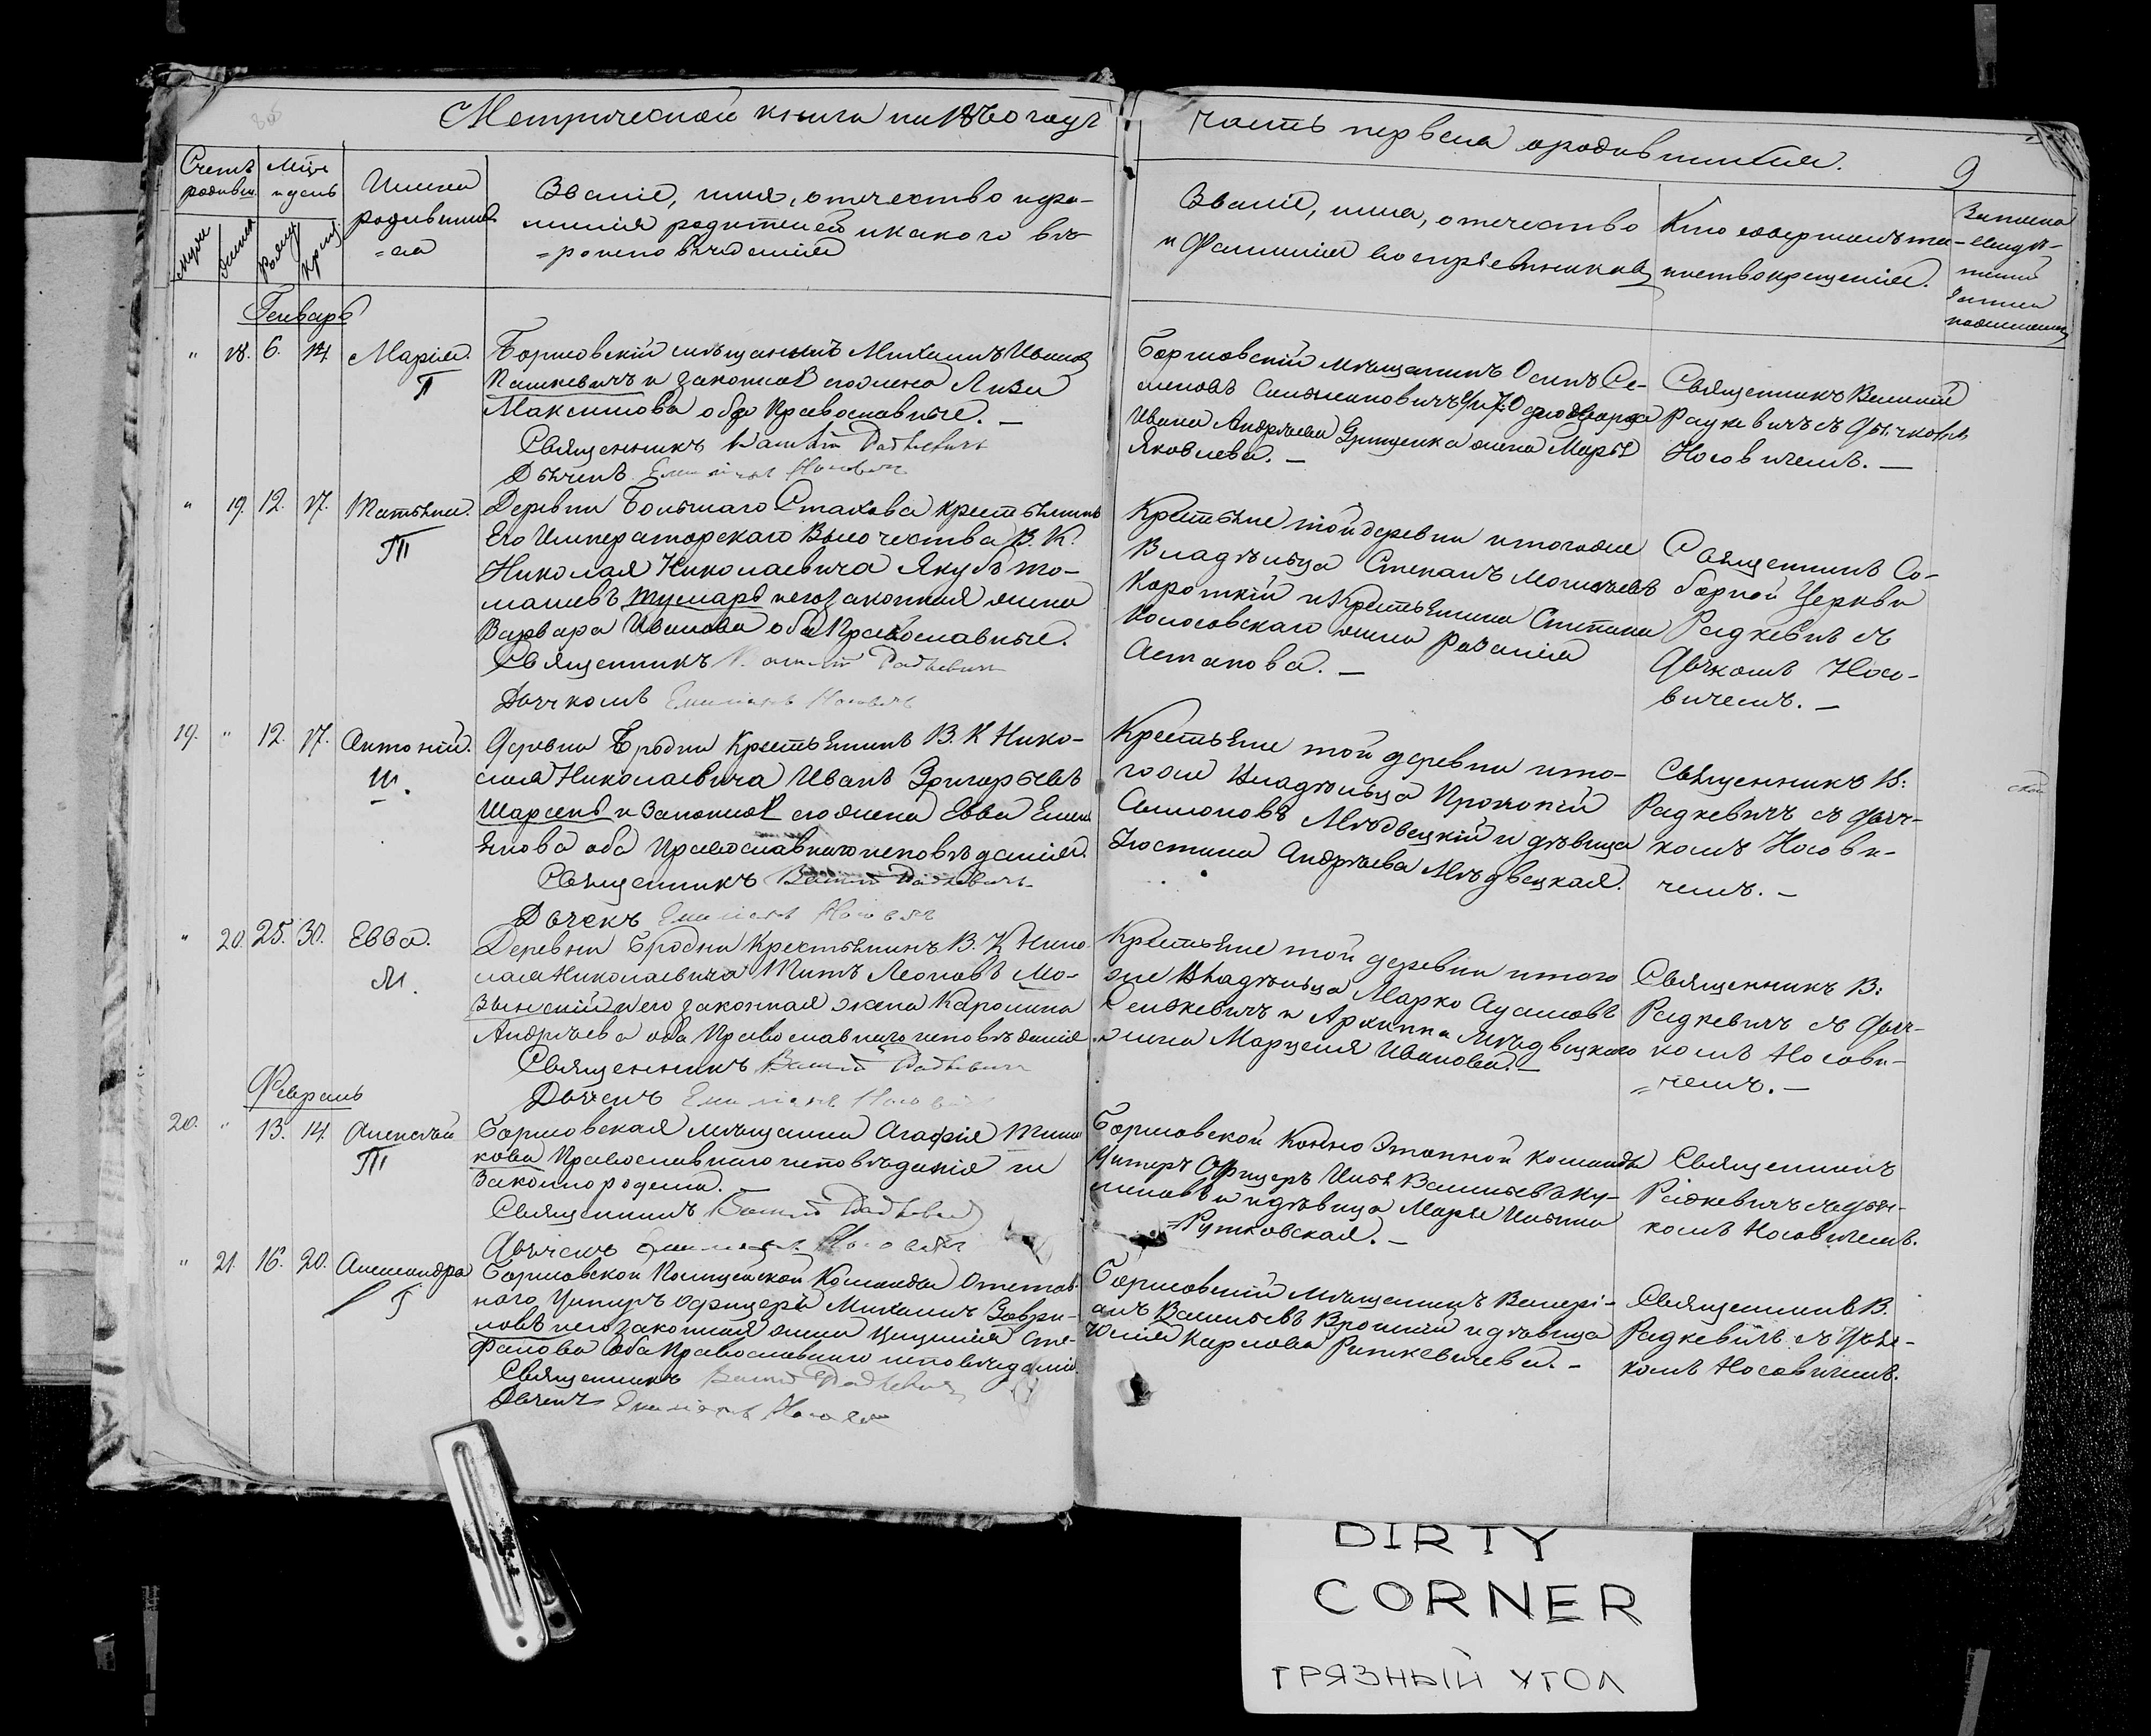 Метрической книги на 1860 годъ
часть первая о родившихся.
9
Счетъ родивш.
Мцъ и день
Имена родивших
=ся
Званіе, имя, отечество и фа-
милія родителей и какого вѣ-
=роисповѣданія
Званіе, имя, отечество
и Фамилія воспріемниковъ
Кто совершалъ та-
инство крещенія.
Генварь
" 18. 6. 14. Марія.
П
Борисовскій мѣщанинъ Михаилъ Ивановъ
Пашкевичъ и законная его жена
Максимова оба Православные. —
Священникъ Василій Радкевичъ
Дьячекъ Емиліанъ Носовичъ
Борисовскій мѣщанинъ Осипъ Се-
меновъ
Ивана Андреева Гриценка жена Марья
Яковлева. —
Священникъ Василій
Радкевичъ съ Дьячкомъ
Носовичемъ. —
" 19. 12. 17. Татьяна.
Т
Деревни Большаго Стахова крестьянинъ
Его Императорскаго Высочества В. К.
Николая Николаевича Якубъ То-
машевъ Тумаръ и его законная жена
Варвара Иванова оба Православные.
Священникъ Василій Радкевичъ
Дьячкомъ Емиліанъ Носовичъ
Крестьяне той деревни и тогоже
Владѣльца Степанъ
Короткій и Крестьянина Степана
Колосовскаго жена Розалія
Астапова. —
Священникъ Со-
борной Церкви
Радкевичъ съ
Дьячкомъ Носо-
вичемъ. —
19. " 12. 17. Антоній.
Ш.
Деревни Бродни Крестьянинъ В. К Нико-
лая Николаевича Иванъ Григорьевъ
и Законная его жена Евва Емель
янова оба Православнаго исповѣданія.
Священникъ Василій Радкевичъ
Дьячекъ Емиліанъ Носовичъ
Крестьяне той деревни и то-
гоже Владѣльца Прокопій
Симоновъ Мѣдвецкій и дѣвица
Юстина Андрѣева Мѣдвецкая.
Священникъ В:
Радкевичъ съ Дьяч-
комъ Носови-
чемъ. —
" 20. 25. 30. Евва.
М.
Деревни Бродни Крестьянинъ В. К Нико-
лая Николаевича Титъ Леоновъ Мо-
зынскій и его законная жена Каролина
Андрѣева оба Православнаго исповѣданія.
Священникъ Василій Радкевичъ
Дьячекъ Емиліанъ Носовичъ
Крестьяне той деревни и того
же Владѣльца Марко Адамовъ
Сенкевичъ и Архипа Мѣдвецкаго
жена Марцеля Иванова. —
Священникъ В:
Радкевичъ съ Дьяч-
комъ Носови-
=чемъ. —
Февраль
20. " 13. 14. Алексѣй
Т
Борисовская мѣщанка Агафія
кова Православнаго исповѣданія не
законнорожден.
Священникъ Василій Радкевичъ
Дьячекъ Емиліанъ Носовичъ
Борисовской Конно Этапной Команды
Унтеръ Офицеръ Илья Васильевъ
и дѣвица Марья Ильина
=Рутковская. —
Священникъ
Радкевичъ съ дьяч-
комъ Носовичемъ.
" 21. 16. 20. Александра
Г
Борисовской Полицейской Команды Отстав-
наго Унтеръ Офицера Михаилъ Гаври-
ловъ и его законная жена Цицилія Сте-
фанова Оба Православнаго исповѣданія.
Священникъ Василій Радкевичъ
Дьячекъ Емиліанъ Носовичъ
Борисовскій Мѣщанинъ Валері-
анъ Васильевъ Вронскій и дѣвица
Юлія Карлова Риткевичева. —
Священникъ В.
Радкевичъ съ Дьяч-
комъ Носовичемъ.
DIRTY
CORNER
ГРЯЗНЫЙ УГОЛ